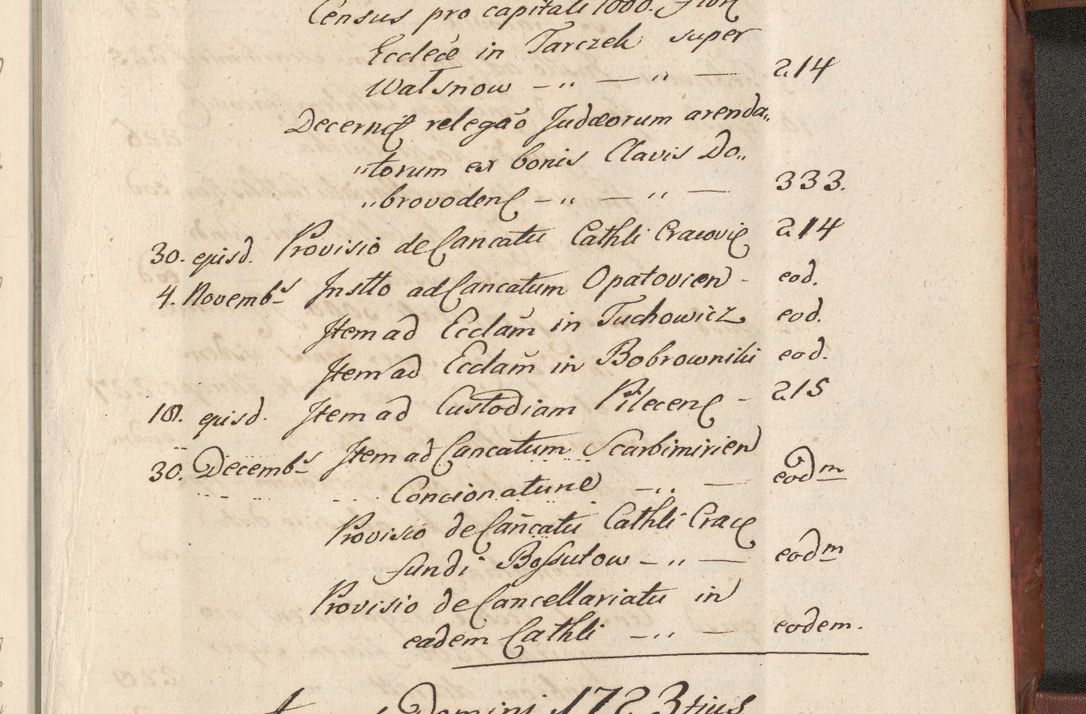 Census pro capitali 1000. Flor
Eccleæ in Tarczek super
Walsnow - „ — „ — 214
Decernę relegaõ Judæorum arenda„
„torum ex bonis Clavis Do„
„brovodenę - „ — „ — 333.
30. ejusd. Provisio de Cancatu Cathli Cracovię 214
4. Novembr Instto ad Cancatum Opatovien - eod.
Item ad Ecclam̃ in Tuchowicz eod.
Item ad Ecclam̃ in Bobrowniki eod.
18. ejusd. Item ad Custodiam Pilecenę - 215
30. Decembr Item ad Cancatum Scarbimirien
Concionaturæ - „ — eodm
Provisio de Cañcatu Cathli Cracę
fundi Bossutow - „ — eodm
Provisio de Cancellariatu in
eadem Cathli - „ — eodem.
Domini 1723tius